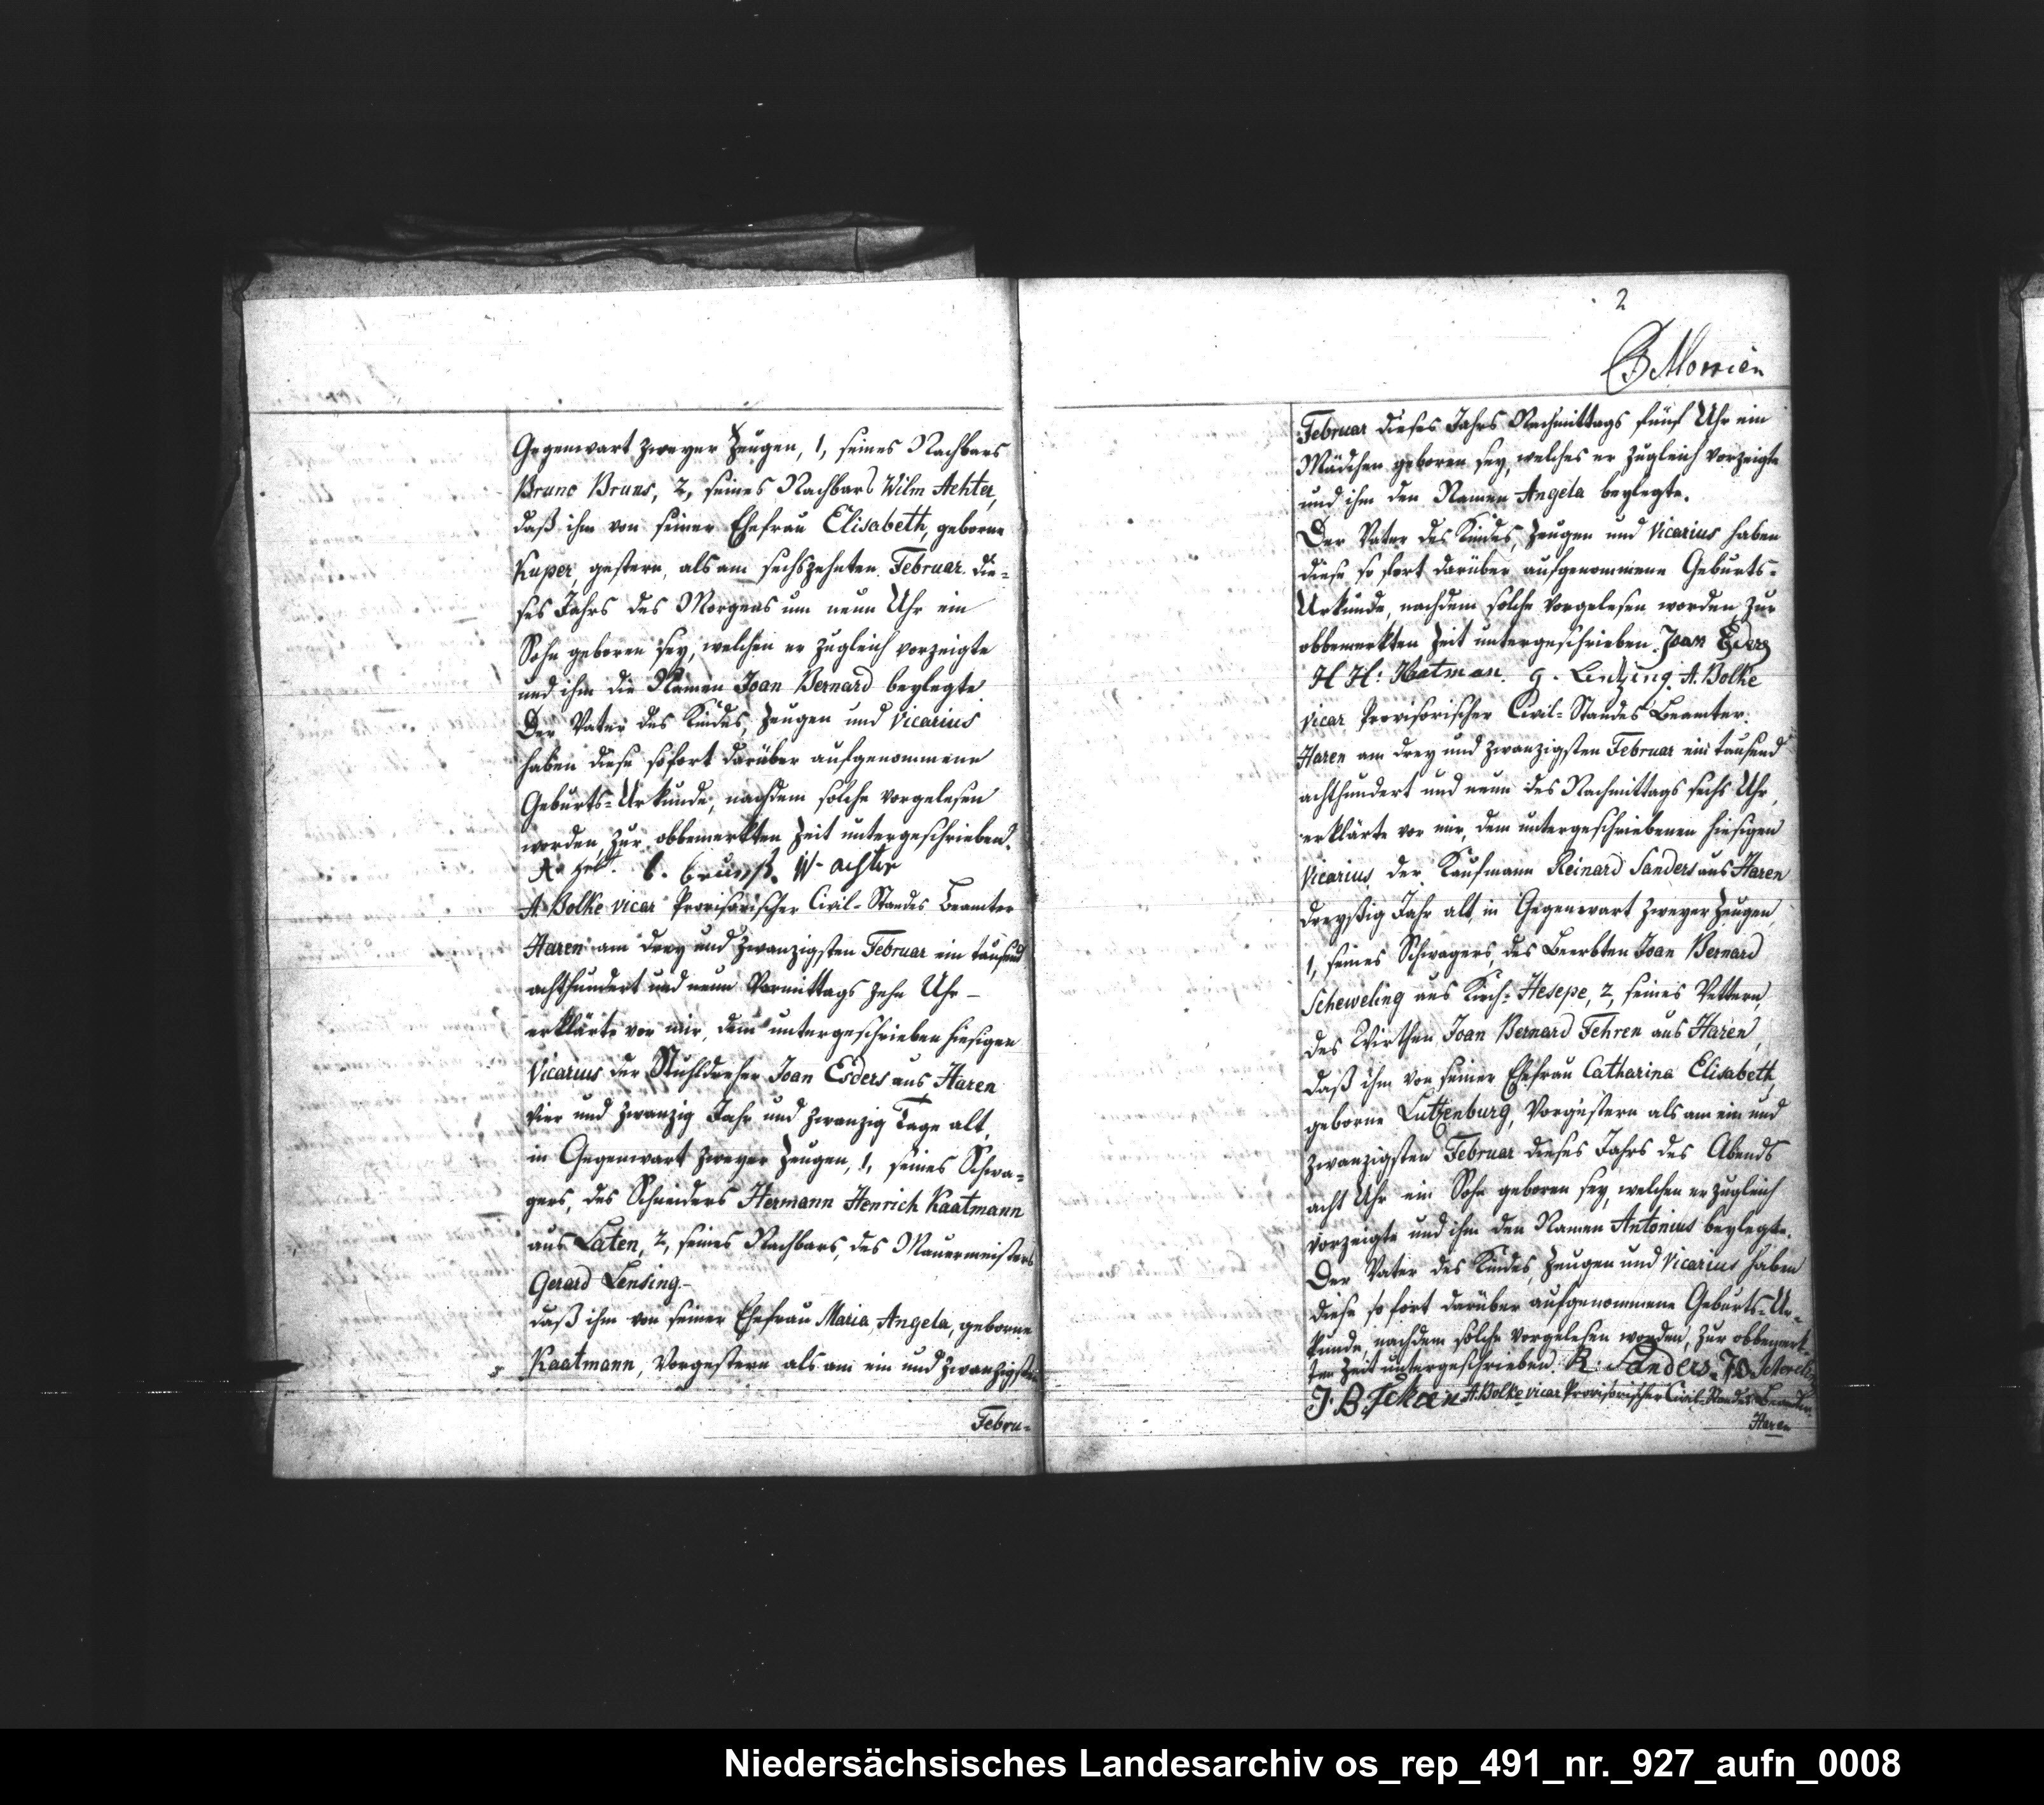 Gegenwart zweyer Zeugen, 1, seines Nachbars
Bruno Bruns, 2, seines Nachbars Wilm Achter,
daß ihm von seiner Ehefrau Elisabeth, geborne
Kuper, gestern, als am sechszehnten Februar die-
ses Jahrs des Morgens um neun Uhr ein
Sohn geboren sey, welchen er zugleich vorzeigte
und ihm die Namen Joan Bernard beylegte.
Der Vater des Kindes, Zeugen und Vicarius
haben diese sofort darüber aufgenommene
Geburts-Urkunde, nachdem solche vorgelesen
worden, zur obbemerkten Zeit untergeschrieben.
B. Brunß. W. achter
A. Bolke vicar Provisorischer Civil-Standes Beamter
Haren am drey und zwanzigsten Februar ein tausend
achthundert und neun Vormittags zehn Uhr –
erklärte vor mir, dem untergeschrieben hiesigen
Vicarius der Stuhldreher Joan Esders aus Haren
vier und zwanzig Jahr und zwanzig Tage alt,
in Gegenwart zweyer Zeugen, 1, seines Schwa-
gers, des Schneiders Hermann Henrich Kaatmann
aus Laten, 2, seines Nachbars, des Mauermeisters
Gerard Lensing. –
daß ihm von seiner Ehefrau Maria Angela, geborne
Kaatmann, vorgestern als am ein und zwanzigsten
Febru-
2
Februar dieses Jahrs Nachmittags fünf Uhr ein
Mädchen geboren sey, welches er zugleich vorzeigte
und ihm den Namen Angela beylegte.
Der Vater des Kindes, Zeugen und Vicarius haben
diese so fort darüber aufgenommene Geburts-
Urkunde, nachdem solche vorgelesen worden zur
obbemerkten Zeit untergeschrieben. Joan Esders
H H: Kaatman. G. Lensing. A. Bolke
vicar Provisorischer Civil-Standes Beamter.
Haren am drey und zwanzigsten Februar ein tausend
achthundert und neun des Nachmittags sechs Uhr,
erklärte vor mir, dem untergeschriebenen hiesigen
Vicarius, der Kaufmann Reinard Sanders aus Haren
dreyßig Jahr alt, in Gegenwart zweyer Zeugen,
1, seines Schwagers, des Beerbten Joan Bernard
Scheweling aus Kirch-Hesepe, 2, seines Vettern,
des Wirthen Joan Bernard Fehren aus Haren,
daß ihm von seiner Ehefrau Catharina Elisabeth,
geborne Lutzenburg, vorgestern als am ein und
zwanzigsten Februar dieses Jahrs des Abends
acht Uhr ein Sohn geboren sey, welchen er zugleich
vorzeigte und ihm den Namen Antonius beylegte.
Der Vater des Kindes, Zeugen und Vicarius haben
diese so fort darüber aufgenommene Geburts-Ur-
kunde, nachdem solche vorgelesen worden, zur obbemerk-
ten Zeit untergeschrieben. R: Sanders.
J. B. Fehren A. Bolke vicar Provisorischer Civil-Standes Beamter
Haren
Niedersächsisches Landesarchiv os_rep_491_nr._927_aufn_0008